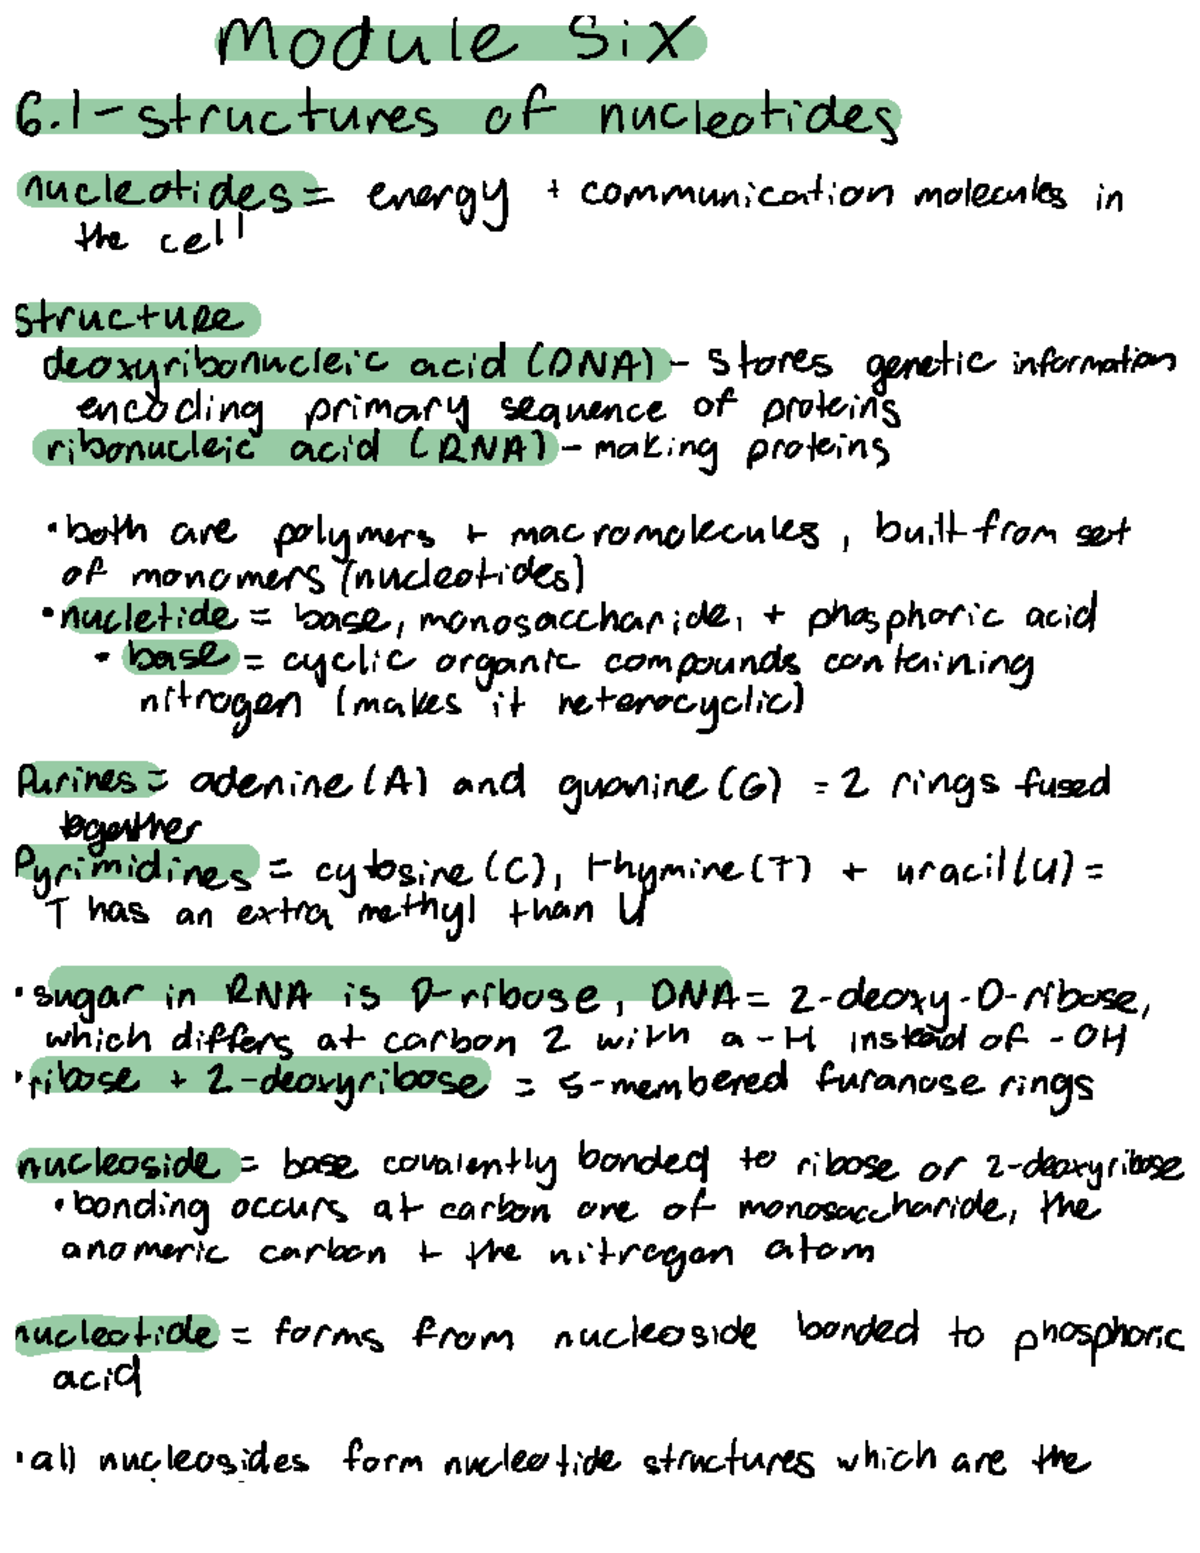 Module Six
6.1-structures of nucleotides
nucleotides = energy + communication molecules in
the cell
structure
deoxyribonucleic acid (DNA) - stores genetic information
encoding primary sequence of proteins
ribonucleic acid (RNA) - making proteins
• both are polymers + macromolecules, built from set
of monomers (nucleotides)
• nucletide = base, monosaccharide, + phosphoric acid
• base = cyclic organic compounds containing
nitrogen (makes it heterocyclic)
Purines = adenine (A) and guanine (G) = 2 rings fused
together
Pyrimidines = cytosine (C), thymine (T) + uracil (U) =
T has an extra methyl than U
• sugar in RNA is D-ribose, DNA = 2-deoxy-D-ribose,
which differs at carbon 2 with a -H instead of -OH
• ribose + 2-deoxyribose = 5-membered furanose rings
nucleoside = base covalently bonded to ribose or 2-deoxyribose
• bonding occurs at carbon one of monosaccharide, the
anomeric carbon + the nitrogen atom
nucleotide = forms from nucleoside bonded to phosphoric
acid
• all nucleosides form nucleotide structures which are the